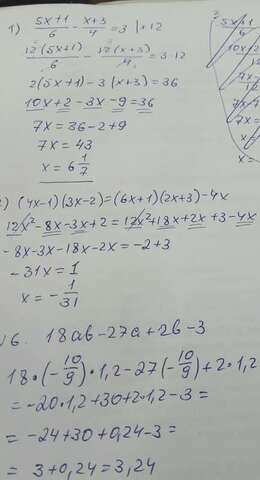 1) (5x+1)/6 - (x+3)/4 = 3 |·12
12(5x+1)/6 - 12(x+3)/4 = 3·12
2(5x+1)-3(x+3)=36
10x+2-3x-9=36
7x=36-2+9
7x=43
x=6 1/7
2) (4x-1)(3x-2)=(6x+1)(2x+3)-4x
12x²-8x-3x+2=12x²+18x+2x+3-4x
-8x-3x-18x-2x=-2+3
-31x=1
x=-1/31
√6. 18ab-27a+2b-3
18·(-10/9)·1,2-27(-10/9)+2·1,2
=-20·1,2+30+2·1,2-3=
=-24+30+0,24-3=
=3+0,24=3,24